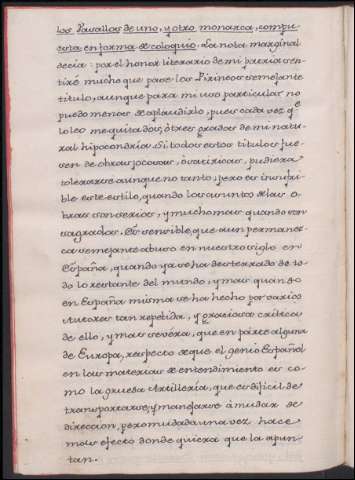 los Vasallos de uno, y otro monarca, compu-
esta en forma de coloquio. La nota marginal
decia: por el honor literario de mi patria sen-
tiré mucho que pase los Pirineos semejante
titulo, aunque para mi uso particular no
puedo menos de aplaudirlo, pues cada vez qe
lo leo me quita dos, ó tres grados de mi natu-
ral hipocondria. Si todos estos titulos fue-
ren de obras jocosas, ó satiricas, pudiera
tolerarse aunque no tanto; pero es insufri-
ble este estilo, quando los asuntos de las o-
bras son serios, y mucho mas quando son
sagrados. Es sensible, que aun permanez-
ca semejante abuso en nuestro siglo en
España, quando ya se ha desterrado de to-
do lo restante del mundo, y mas quando
en España misma se ha hecho por varios
Autores tan repetida, y graciosa critica
de ello, y mas severa, que en parte alguna
de Europa, respecto de que el genio Español
en las materias de entendimiento es co-
mo la gruesa Artilleria, que es dificil de
transportarse, y manejarse á mudar de
direccion, pero mudada una vez hace
mas efecto donde quiera que la apun-
tan.